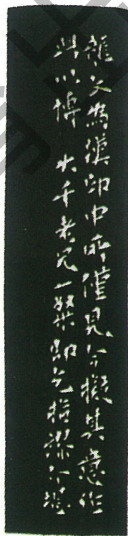 龍文為漢印中所僅見今擬其意作
此以博大千老兄一粲即乞指疵